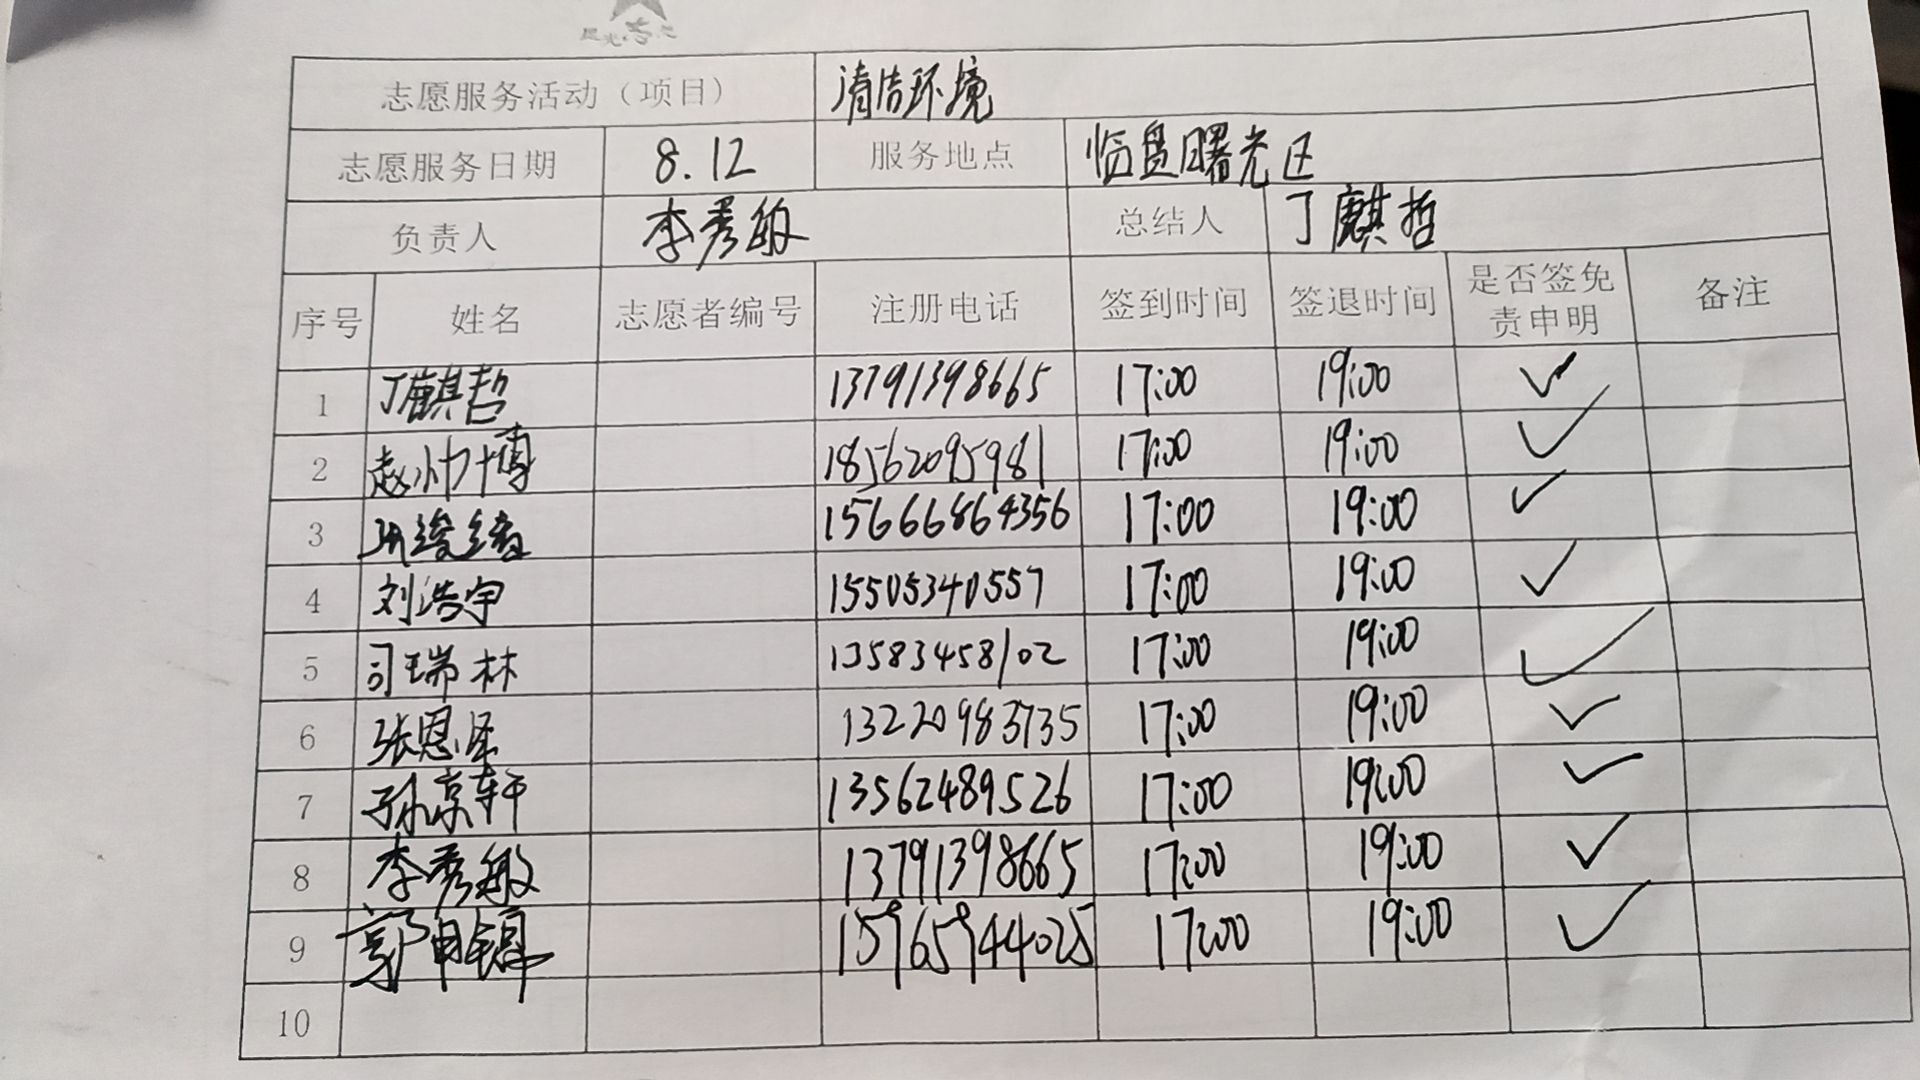 晨光志
志愿服务活动（项目） 清洁环境
志愿服务日期 8.12 服务地点 临盘曙光区
负责人 李秀敏 总结人 丁麒哲
序号 姓名 志愿者编号 注册电话 签到时间 签退时间 是否签免责申明 备注
1 丁麒哲 13791398665 17:00 19:00 ✓
2 赵帅博 18562095981 17:00 19:00 ✓
3 15666864356 17:00 19:00 ✓
4 刘浩宇 15505340557 17:00 19:00 ✓
5 司瑞林 13583458102 17:00 19:00 ✓
6 张恩泽 13220983735 17:00 19:00 ✓
7 孙京轩 13562489526 17:00 19:00 ✓
8 李秀敏 13791398665 17:00 19:00 ✓
9 郭 15965944025 17:00 19:00 ✓
10